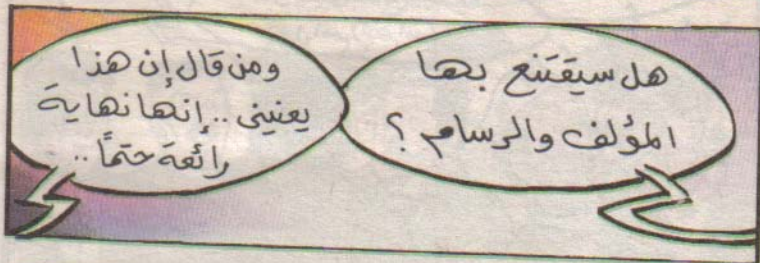 هل سيقتنع بها
المؤلف والرسام ؟
ومن قال إن هذا
يعنيني .. إنها نهاية
رائعة حتماً ..